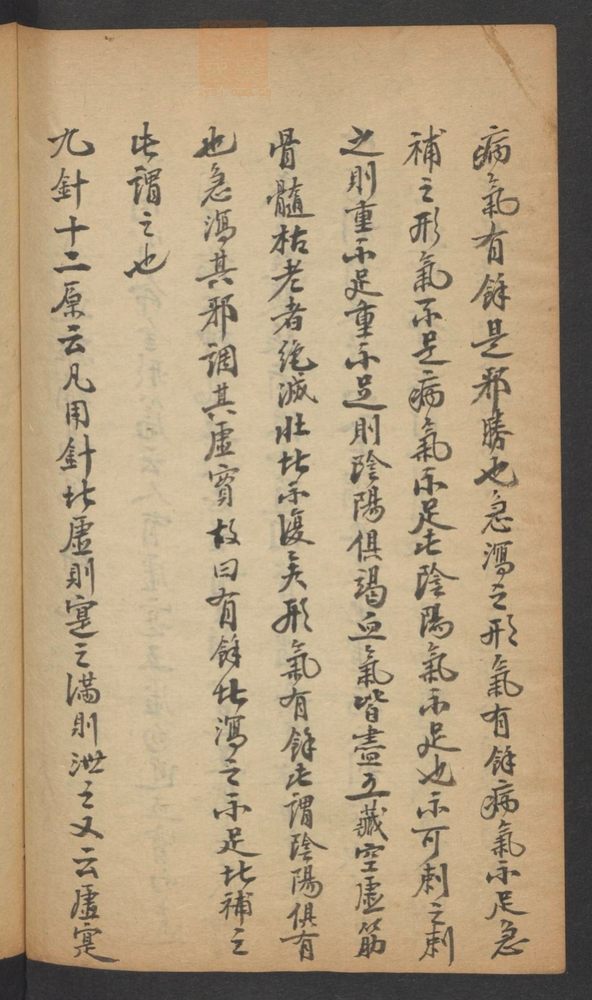 病氣有餘是邪勝也急瀉之形氣有餘病氣不足急
補之形氣不足病氣不足此陰陽氣不足也不可刺之刺
之則重不足重不足則陰陽俱竭血氣皆盡五藏空虛筋
骨髓枯老者绝滅壯者不復矣形氣有餘此謂陰陽俱有
也急瀉其邪調其虛實故曰有餘者瀉之不足者補之
此謂之也
九針十二原云凡用針者虛則寔之満則泄之又云虛寔